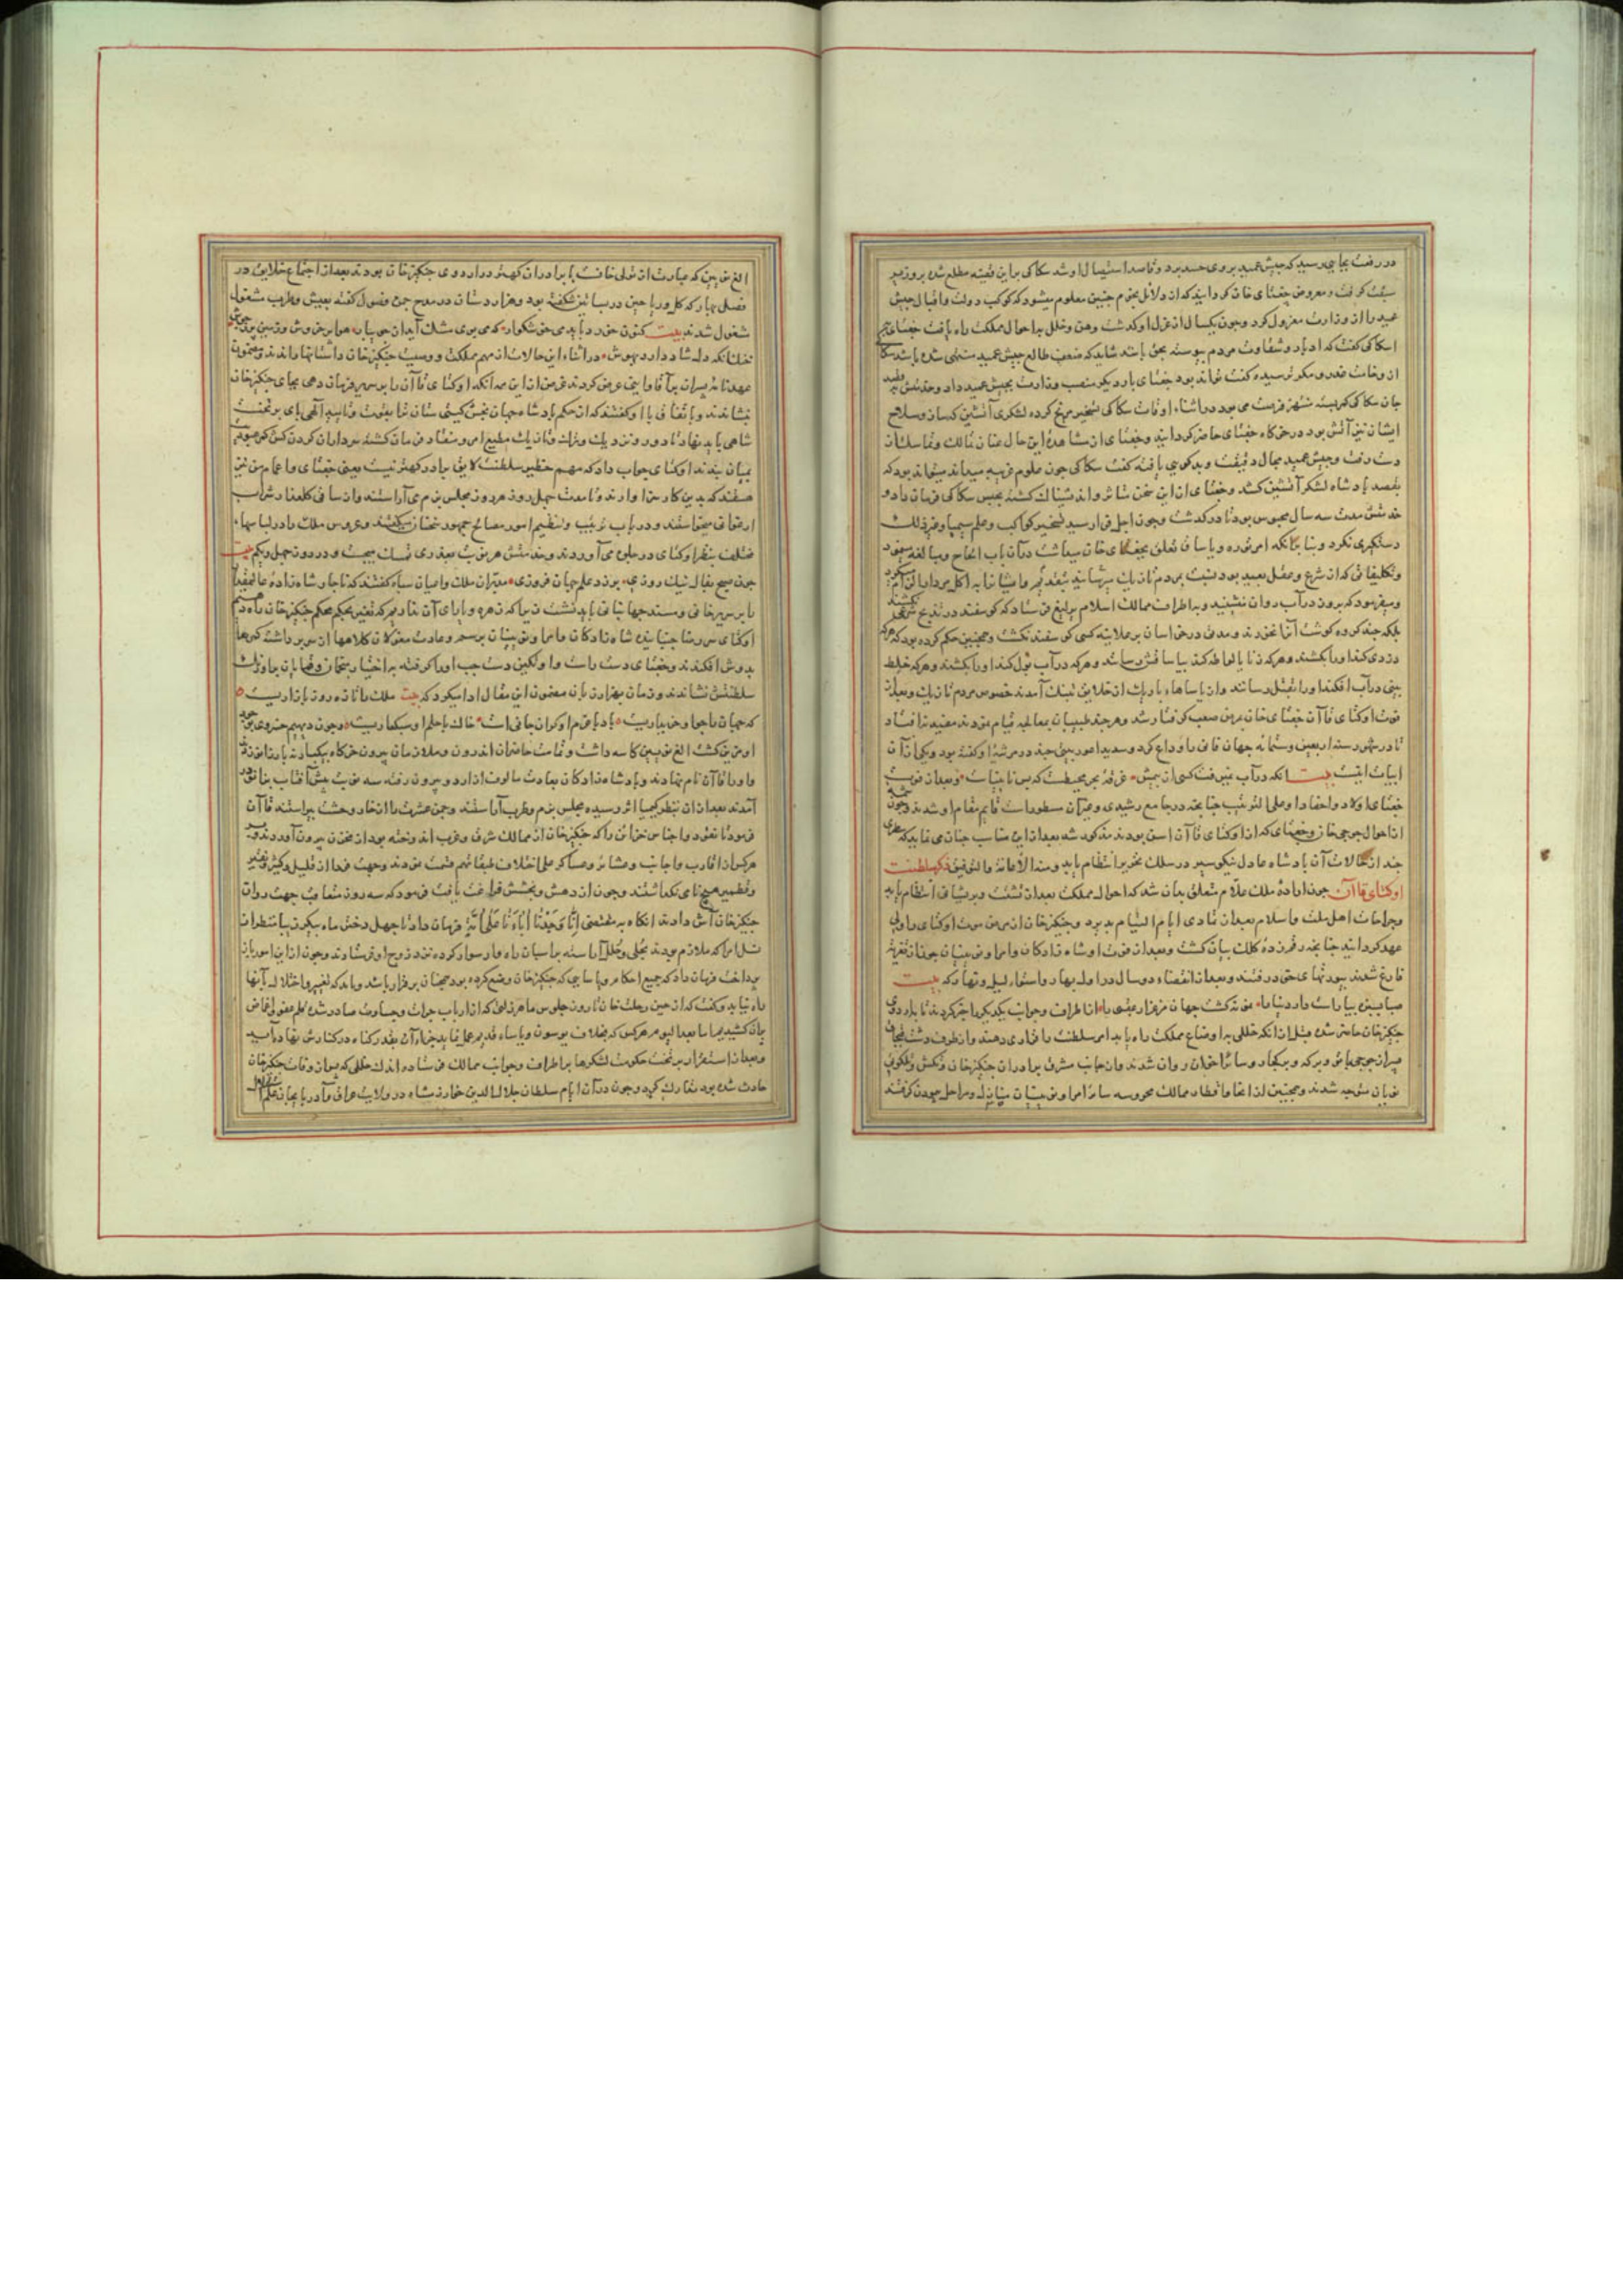 در رفعت بجایی رسید که حبش عمید بر وی حسد برد و قاصد استیصال او شد سکاکی بر این قضیه مطلع شده بر وزیر
سبقت گرفت و معروض جغتای خان گردانید که از دلایل نجوم چنین معلوم میشود که کوکب دولت و اقبال حبش
عمید را از وزارت معزول کرد و چون یکسال از عزل او گذشت وهن و خلل به احوال مملکت راه یافت جغتای
سکاکی گفت که ادبار و شقاوت مردم پیوسته بحق باشد شاید که ضعف طالع حبش عمید منتهی شده باشد
جغتای بار دیگر منصب وزارت بحبش عمید داد
جان سکاکی کمر بسته منتهز فرصت می بود در اثناء اوقات سکاکی تسخیر مریخ کرده لشکری آتشین که ساز و سلاح
ایشان نیز آتش بود در خرگاه جغتای حاضر گردانید و جغتای از مشاهدهٔ این حال عنان تمالک و تماسک از
دست رفت و حبش عمید مجال دقیقت و بدگویی یافته گفت سکاکی چون علوم غریبه میداند میتواند بود که
بقصد پادشاه لشکر آتشین کشد و جغتای از این سخن متاثر و اندیشناک گشته بحبس سکاکی فرمان داد و
مدت سه سال محبوس بود تا در گذشت و چون اجل فرا رسید تسخیر کواکب و علم سیمیا و غیر ذلک
دستگیری نکرد و بنا بر آنکه امر توره و یاساق تعلق بجغتای خان میداشت در آن باب الحاح و مبالغه
و تکلیفاتی که از شرع و عقل بعید بود نسبت بمردم تازیک
و میفرمود که بروز در آب روان ننشینند و به اطراف ممالک اسلام یرلیغ فرستاد که گوسفند در
بلکه چند گروه گوشت آنرا نخورند و مدتی در خراسان بر علانیه کسی گوسفند نکشت و همچنین حکم کرده بود که
دزدی کند او را بکشند و هر که زنا یا لواطه کند بیاسا قتل رسانند و هر که در آب بول کند او را بکشند و هر که خلط
بینی در آب افکند او را بقتل رسانند و از یاساهاء باریک او خلایق بتنگ آمدند خصوص مردم تازیک و بعد از
فوت اوکتای قاآن جغتای خان بمرض صعب گرفتار شد و هر چند طبیبان بمعالجه قیام نمودند مفید نه افتاد
تا در شهور سنه اربعین و ستمائه جهان فانی را وداع کرد و سدید اعور بیتی چند در مرثیهٔ او گفته بود و یکی از آن
ابیات اینست بیت آنکه در آب نمیرفت کسی از بیمش غرقه بحر محیطست که بس ناپیداست و بعد از فوت
جغتای اولاد و احفاد او علی الترتیب چنانچه در جامع رشیدی و غیر آن مسطور است قایم مقام او شدند
احوال جوجی خان و جغتای که از اوکتای قاآن اسن بودند مذکور شد بعد از این مناسب چنان می نماید که
چند از حالات آن پادشاه عادل نیکو سیر در سلک تحریر انتظام یابد و منه الاعانة والتوفیق ذکر سلطنت
اوکتای قاآن چون ارادهٔ ملک علام متعلق بدان شد که احوال مملکت بعد از تشتت و پریشانی انتظام یابد
و جراحات اهل ملت و اسلام بعد از تمادی ایام التیام پذیرد و چنگیزخان از مرض موت اوکتای را ولی
عهد گردانید چنانچه رقمزدهٔ کلک بیان گشت و بعد از فوت او شاهزادگان و امرا و نوینان چون از تعزیه
فارغ شدند بیورتهای خود رفتند و بعد از انقضاء دو سال در اول بهار و استواء لیل و نهار که بیت
صبا بسبزه بیاراست دار دنیا را نمونه گشت جهان مرغزار عقبی را از اطراف و جوانب یکدیگر را خبر کردند تا باردوی
چنگیزخان حاضر شده قبل از آنکه خللی به اوضاع مملکت راه یابد امر سلطنت را قراری دهند و از طرف دشت قبچاق
پسران جوجی باتو و برکه و برکجار و سائر اخوان روان شدند و از جانب مشرق برادران چنگیزخان
نویان متوجه شدند و همچنین از انحا و اقطار ممالک محروسه سائر امرا و نوینان منازل و مراحل پیمودن گرفتند
الغ نویین که عبارت از تولی خانست با برادران کهتر در اردوی چنگیزخان بودند بعد از اجتماع خلایق در
فصل بهار که گل و ریاحین در بساتین شکفته بود و هزار دستان در مدح چمن فصول گفته بعیش و طرب مشغول
مشغول شدند بیت کنون خورد باید می خوشگوار که می بوی مشک آید از جویبار هوا پر خروش و زمین پر ز جوش
خنک آنکه دل شاد دارد بنوش در اثناء این حالات از مهم مملکت و وصیت چنگیزخان داستانها راندند و مضمون
عهدنامه پسران بر آقا و اینی عرض کردند غرض از این همه آنکه اوکتای قاآن را بر سریر فرمان دهی بجای چنگیزخان
نشاندند و باتفاق با او گفتند که از حکم پادشاه جهان بخش گیتی ستان ترا بقوت و تایید الهی پای بر تخت
شاهی باید نهاد تا دور و نزدیک و ترک و تازیک مطیع امر و منقاد فرمان گشته سرداران گردن کش کمر عبودیت
بمیان بندند اوکتای جواب داد که مهم خطیر سلطنت لایق برادر کهتر نیست یعنی جغتای و اعمام من نیز
هستند که بدین کار سزاوارند و تا مدت چهل روز هر روز مجلس بزم می آراستند و از ساقی گلعذار شراب
ارغوانی میخواستند و در باب ترتیب و تنظیم امور مصالح جمهور سخنان میگفتند و عروس ملک را در لباسهاء
مختلف بنظر اوکتای در جلوه می آوردند و حدیثش هر نوبت بعذری تمسک میجست و در روز چهل و یکم بیت
چون صبح بفال نیک روزی بر زد علم جهان فروزی معتبران ملک و اعیان سپاه گفتند که تاجدار شاهزاده
را بر سریر خانی و مسند جهانبانی باید نشست زیرا که زهره و یارای آن نداریم که تغییر بحکم محکم چنگیزخان راه دهیم
اوکتای سر رضا جنبانیده شاهزادگان و امرا و نوینان بر رسم و عادت مغولان کلاهها از سر برداشته کمرها
بدوش افکندند و جغتای دست راست و اوتکین دست چپ او را گرفته به اختیار منجمان و قامان بر اورنگ
سلطنتش نشاندند و زمان بهزار زبان مضمون این مقال ادا میکرد که بیت ملک را تازه روز بازاریست
که جهان را جهانداریست باد با عزم او گران جانی است خاک با حلم او سبکساریست و چون دیهیم خسروی
او مزین گشت الغ نویین کاسه داشت و تمامت حاضران اندرون و ملازمان بیرون خرگاه یکبار زانو زدند
و او را قاآن نام نهادند و پادشاهزادگان بعادت مالوف از اردو بیرون رفته سه نوبت پیش آفتاب زانو زده
آمدند بعد از آن بنظر کیمیا اثر رسیده مجلس بزم و طرب آراستند و چمن عشرت را از خار وحشت پیراستند قاآن
فرمود تا نقود و اجناس خزاین را که چنگیزخان از ممالک شرق و غرب اندوخته بود از مخزن بیرون آوردند و بر
هر کس از اقارب و اجانب و عشائر و عساکر علی اختلاف طبقاتهم قسمت نمودند و جهت فردا از قلیل و کثیر و نقیر
و قطمیر هیچ باقی نگذاشتند و چون از دهش و بخشش فراغت یافت فرمود که سه روز متعاقب جهت روان
چنگیزخان آش دادند آنگاه به مقتضی اِنّا وَجَدْنا آباءَنا عَلی اُمَّةٍ فرمان داد تا چهل دختر ماه پیکر زیبا منظر از
نسل امرا که ملازم بودند بحلی و حلل آراسته بر اسبان راهوار سوار کرده نزد روح او فرستادند و چون از این امور باز
پرداخت فرمان داد که جمیع احکام و یاسایی که چنگیزخان وضع کرده بود همچنان برقرار باشد و باید که تغییر و اختلال بآنها
راه نیابد و گفت که از حین رحلت خان تا روز جلوس ما هر زلتی که از ارباب جرات و جسارت صادر شده قلم عفو و اغماض
بر آن کشیدیم اما بعد الیوم هر کس که بخلاف یوسون و یاساء قدیم عمل نماید جزاء آن بقدر گناه در کنارش نهاده آید
و بعد از استقرار بر تخت حکومت لشکرها بر اطراف و جوانب ممالک فرستاده اندک خللی که بعد از وفات چنگیزخان
حادث شده بود تدارک کرد و چون در آن ایام سلطان جلال الدین خوارزمشاه در ولایت عراق و آذربایجان علم